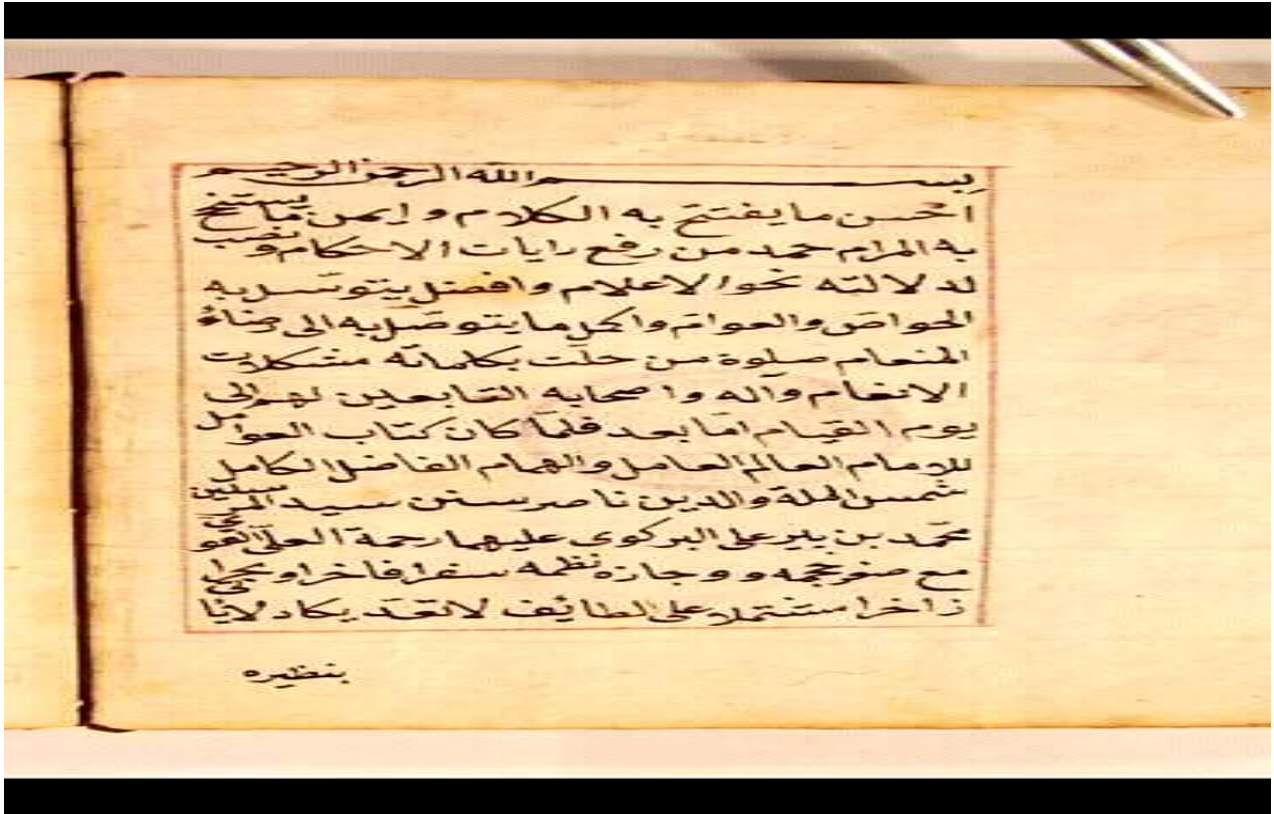 بسم الله الرحمن الرحيم
احسن ما يفتتح به الكلام و ايمن ما يستنجح
به المرام حمد من رفع رايات الاحكام و نصب
لدلالته نحوا لاعلام وافضل يتوسّل به
الخواصّ والعوامّ واكمل ما يتوصّل به الى رضاء
المنعام صلوة من حلّت بكلماته مشكلات
الانغام وآله واصحابه التابعين لهم الى
يوم القيام امّا بعد فلمّا كان كتاب العوامل
للامام العالم العامل والهمام الفاضل الكامل
شمس الملة والدين ناصر سنن سيد المرسلين
محمّد بن پير على البركوى عليهما رحمة العلىّ القوى
مع صغر حجمه و وجازة نظمه سفرا فاخرا و بحرا
زاخرا مشتملا على لطائف لا تعدّ يكاد لايا
بنظيره